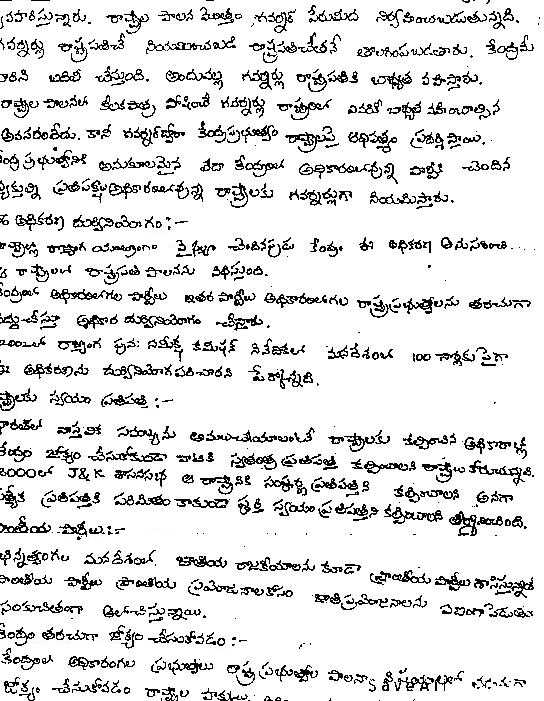 వ్యవహరిస్తున్నారు. రాష్ట్రాల పాలన మొత్తం గవర్నర్ పేరుమీద నిర్వహించబడుతున్నది.
గవర్నర్లు రాష్ట్రపతిచే నియమించబడి రాష్ట్రపతిచేతనే తొలగింపబడతారు. కేంద్రమే
వారిని బదిలీ చేస్తుంది. అందువల్ల గవర్నర్లు రాష్ట్రపతికి బాధ్యత వహిస్తారు.
రాష్ట్రాల పాలనలో కీలకపాత్ర పోషించే గవర్నర్లు రాష్ట్రాలలో ఎవరికీ బాధ్యత వహించాల్సిన
అవసరంలేదు. కానీ గవర్నర్ ద్వారా కేంద్రప్రభుత్వం రాష్ట్రాలపై ఆధిపత్యం
కేంద్ర ప్రభుత్వానికి అనుకూలమైన లేదా కేంద్రంలో అధికారంలోవున్న పార్టీకి చెందిన
వ్యక్తుల్ని ప్రతిపక్షం అధికారంలోవున్న రాష్ట్రాలకు గవర్నర్లుగా నియమిస్తారు.
అధికరణ దుర్వినియోగం :-
రాష్ట్రాల్లో రాజ్యాంగ యంత్రాంగం వైఫల్యం చెందినప్పుడు కేంద్రం ఈ అధికరణ అనుసరించి
ఆ రాష్ట్రాలలో రాష్ట్రపతి పాలనను విధిస్తుంది.
కేంద్రంలో అధికారంలోగల పార్టీలు ఇతర పార్టీలు అధికారంలోగల రాష్ట్రప్రభుత్వాలను తరచుగా
రద్దుచేస్తూ అధికార దుర్వినియోగం చేస్తారు.
రాజ్యాంగ పునః సమీక్ష కమిషన్ నివేదికలో మనదేశంలో 100 సార్లకు పైగా
ఈ అధికరణను దుర్వినియోగపరిచారని పేర్కొన్నది.
రాష్ట్రాలకు స్వయం ప్రతిపత్తి :-
భారత్‌లో వాస్తవిక సమాఖ్యను అమలుచేయాలంటే రాష్ట్రాలకు కల్పించిన అధికారాల్లో
కేంద్రం జోక్యం చేసుకోకుండా వాటికి స్వతంత్ర ప్రతిపత్తి కల్పించాలని రాష్ట్రాలు కోరుతున్నవి.
2000లో J&K శాసనసభ ఆ రాష్ట్రానికి సంపూర్ణ ప్రతిపత్తిని కల్పించాలని అనగా
ప్రత్యేక ప్రతిపత్తికి పరిమితం కాకుండా పూర్తి స్వయం ప్రతిపత్తిని కల్పించాలని తీర్మానించింది.
ప్రాంతీయ పార్టీలు :-
భిన్నత్వంగల మనదేశంలో జాతీయ రాజకీయాలను కూడా ప్రాంతీయ పార్టీలు శాసిస్తున్నాయి
ప్రాంతీయ పార్టీలు ప్రాంతీయ ప్రయోజనాలకోసం జాతీ ప్రయోజనాలను పణంగా పెడుతూ
సంకుచితంగా ఆలోచిస్తున్నాయి.
కేంద్రం తరచుగా జోక్యం చేసుకోవడం :-
కేంద్రంలో అధికారంగల ప్రభుత్వాలు రాష్ట్ర ప్రభుత్వాల పాలనా విషయాలలో తరచుగా
జోక్యం చేసుకోవడం రాష్ట్రాల హక్కులు